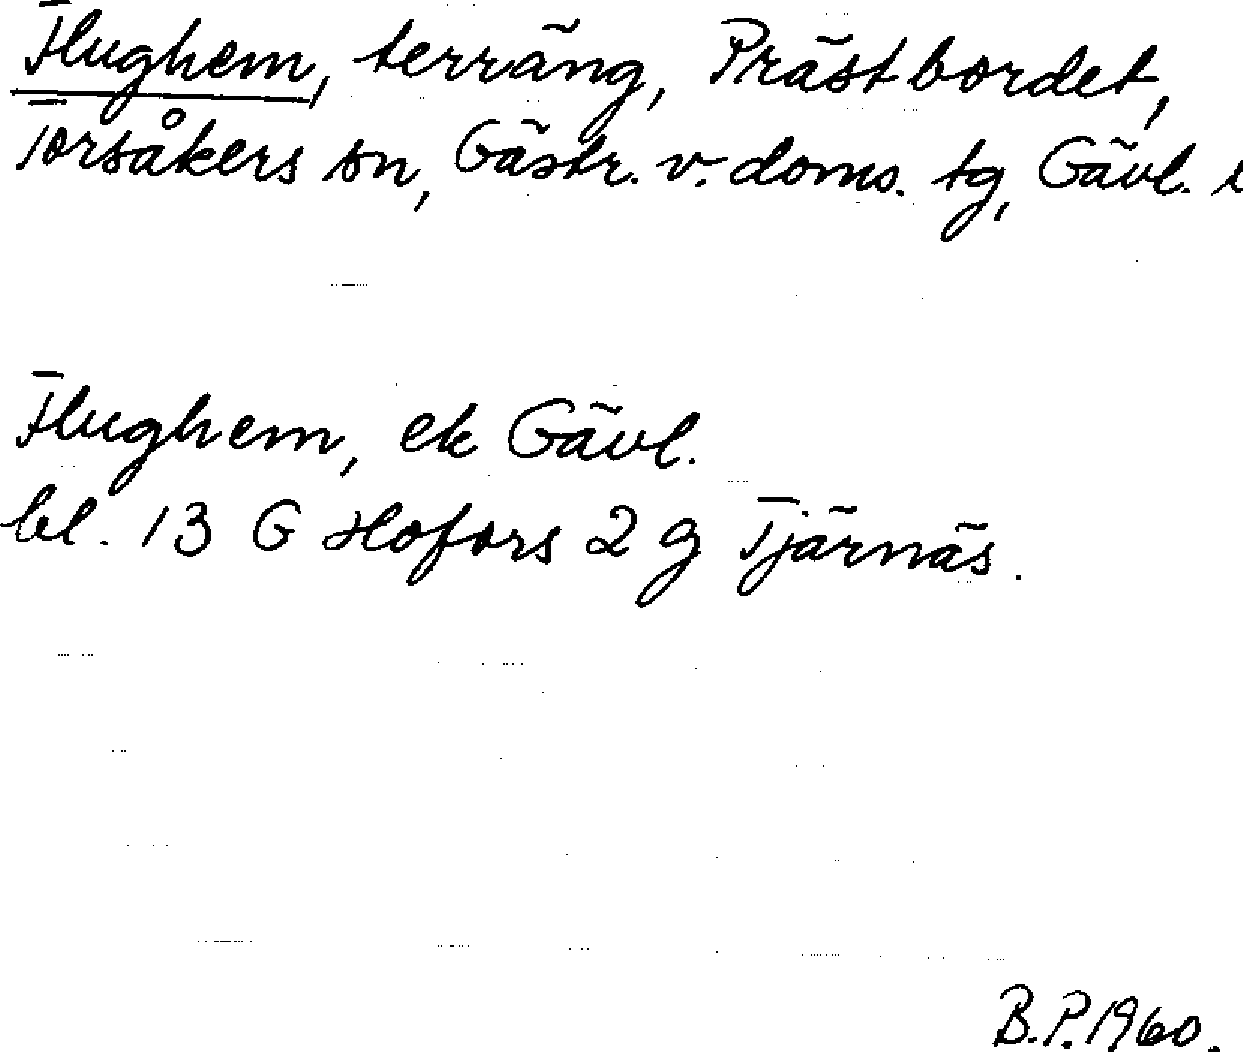 Flughem, terräng, Prästbordet,
Torsåkers sn, Gästr. v. doms. tg, Gävl.
Flughem, ek Gävl.
bl. 13 G Hofors 2 g Tjärnäs.
B.P. 1960.